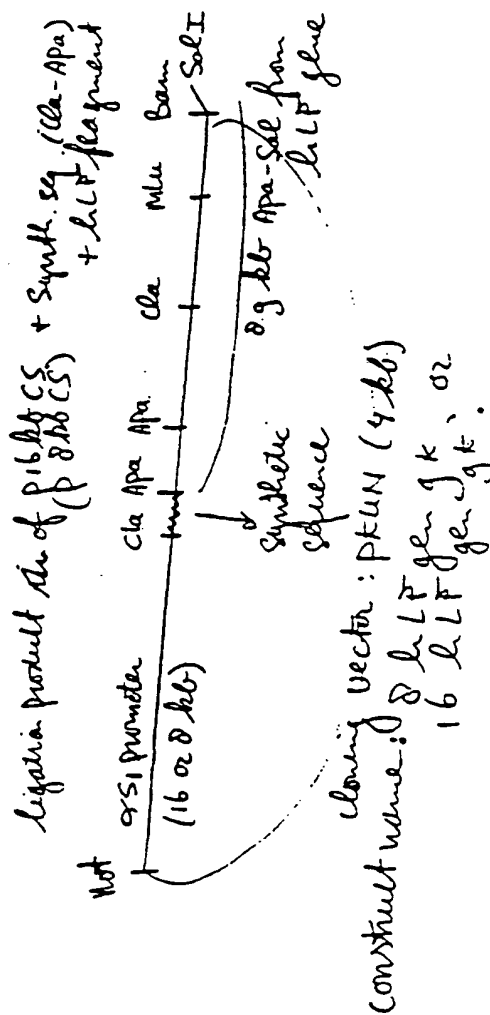 ligation product of p16kb CS + Synth. seq. (Cla-Apa)
(p 8kb CS) + hLF fragment
Not Cla Apa Apa Cla Mlu Bam
Sal I
αS1 promoter
(16 or 8 kb)
Synthetic
sequence
8.9 kb Apa-Sal from
hLF gene
cloning vector: pKUN (4 kb)
construct name: 8 hLF gen 9 k, or
16 hLF gen 9k.